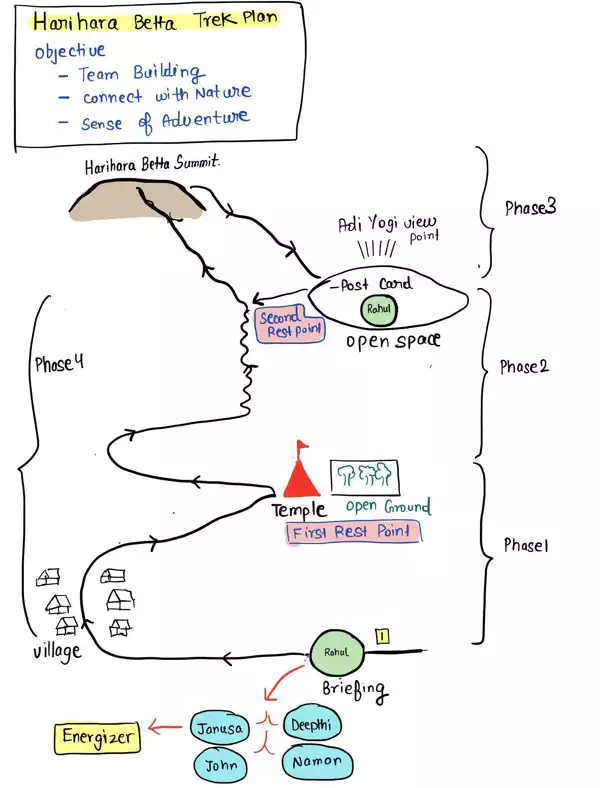 Harihara Betta Trek Plan
Objective
- Team Building
- Connect with Nature
- Sense of Adventure
Harihara Betta Summit.
Phase3
Adi Yogi view
point
-Post Card
Rahul
Open space
Second
Rest point
Phase4
Phase2
Temple
Open Ground
First Rest Point
Phase1
Village
1
Rahul
Briefing
Energizer
Janusa
Deepthi
John
Naman